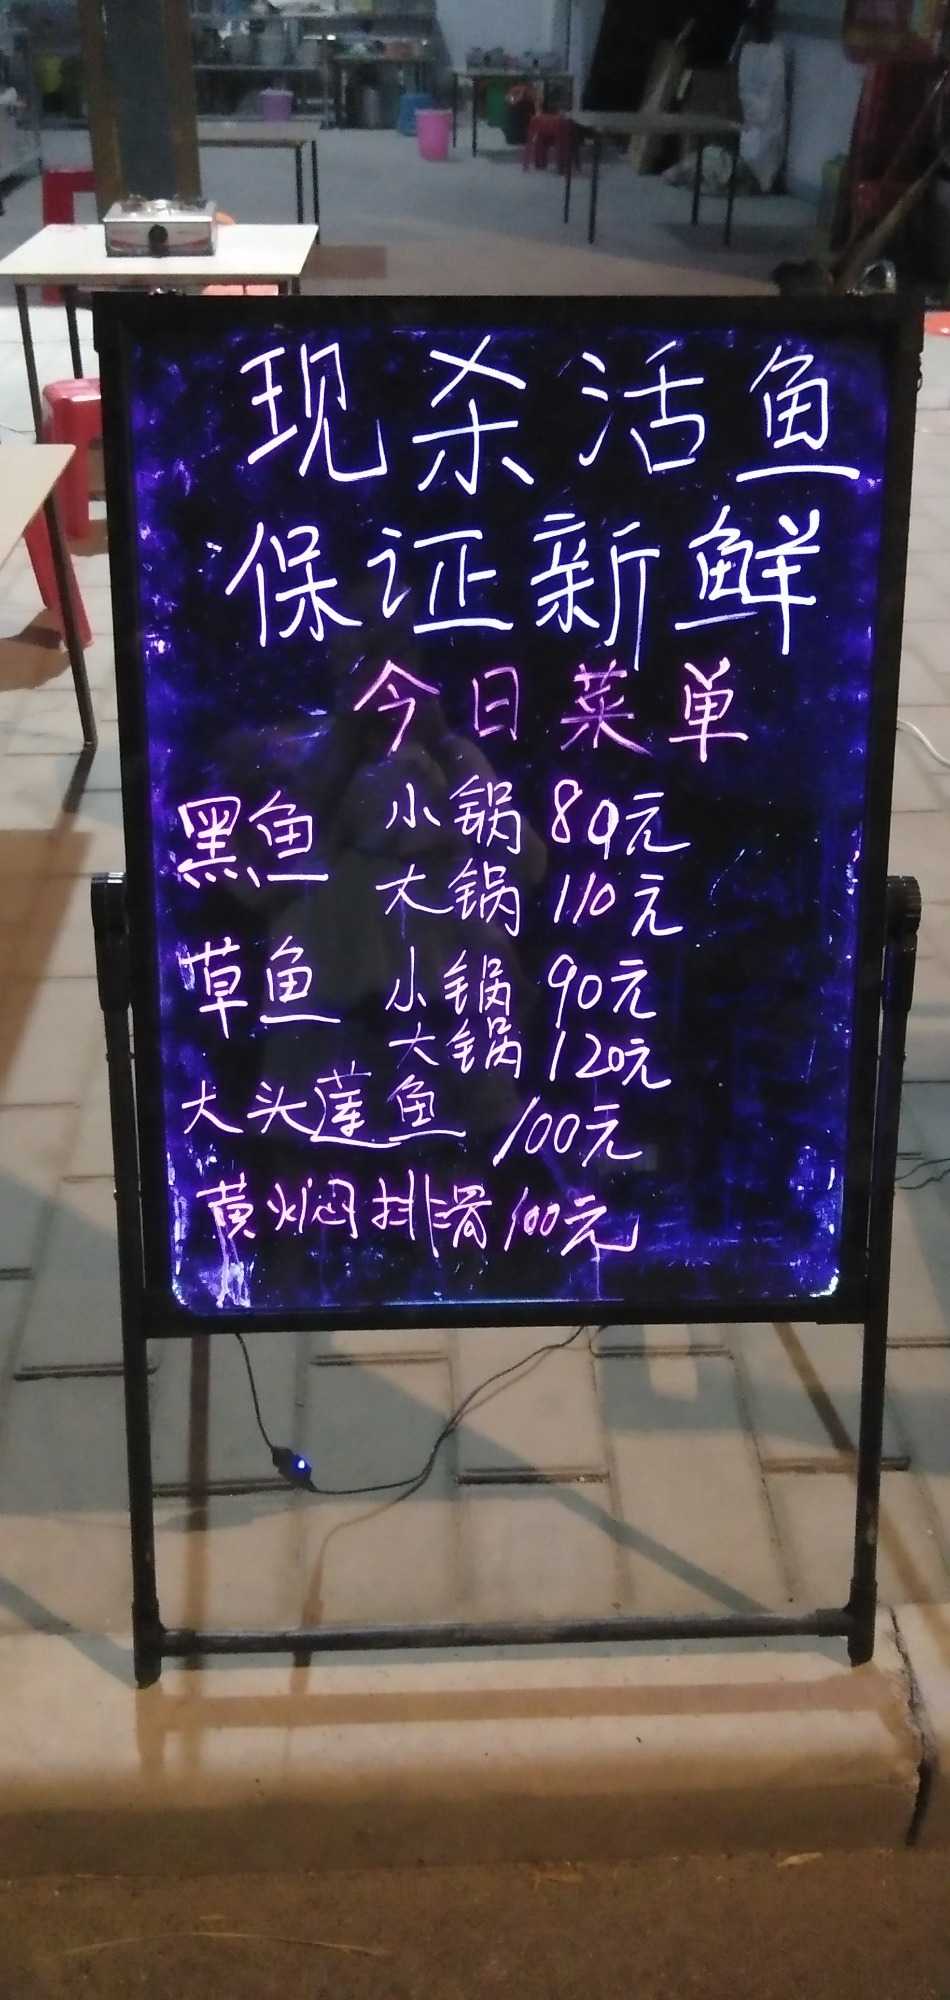 现杀活鱼
保证新鲜
今日菜单
黑鱼 小锅 89元
大锅 110元
草鱼 小锅 90元
大锅 120元
大头莲鱼 100元
黄焖排骨 100元